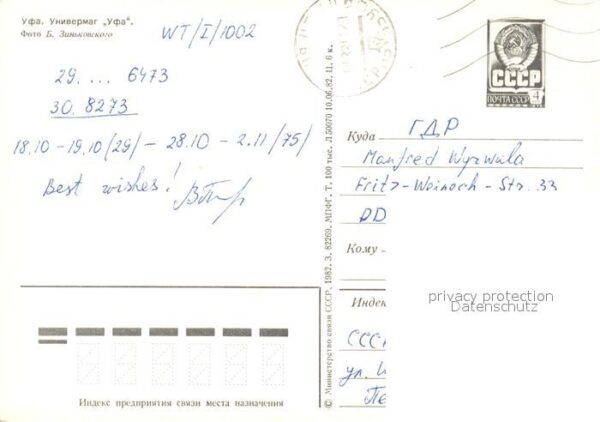 Уфа. Универмаг „Уфа“.
Фото Б. Зиньковского
WT/I/1002
29. ... 6473
30. 8273
18.10 - 19.10 (29) - 28.10 - 2.11 (75)
Best wishes!
СССР
ПОЧТА СССР 4
Куда ГДР
Manfred Wyrwula
Fritz-Weineck-Str. 33
DD
Кому
privacy protection
Datenschutz
Индек
СССР
ул.
Индекс предприятия связи места назначения
© Министерство связи СССР. 1982. З. 82269. МПФГ. Т. 100 тыс. Л50070 10.06.82. Ц. 6 к.